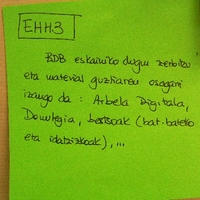 EHH3
BDB eskainiko dugun zerbitzu
eta material guztiaren osagarri
izango da: Arbela Digitala,
Domutegia, bertsoak (bat-bateko
eta idatzizkoak), ...